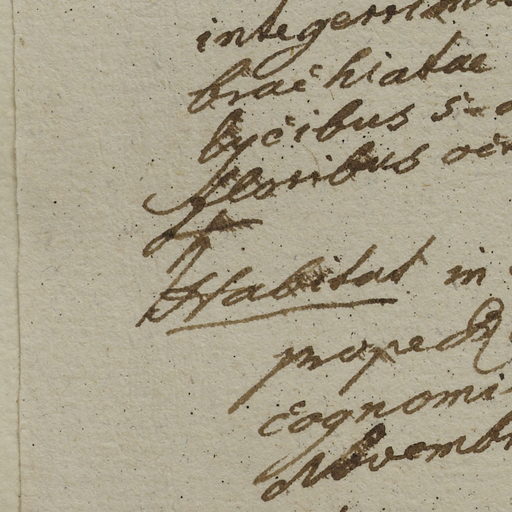 integerrim
brachiatae
lycibus 5-
floribus
Habitat in
prope
cognomi
Novembr